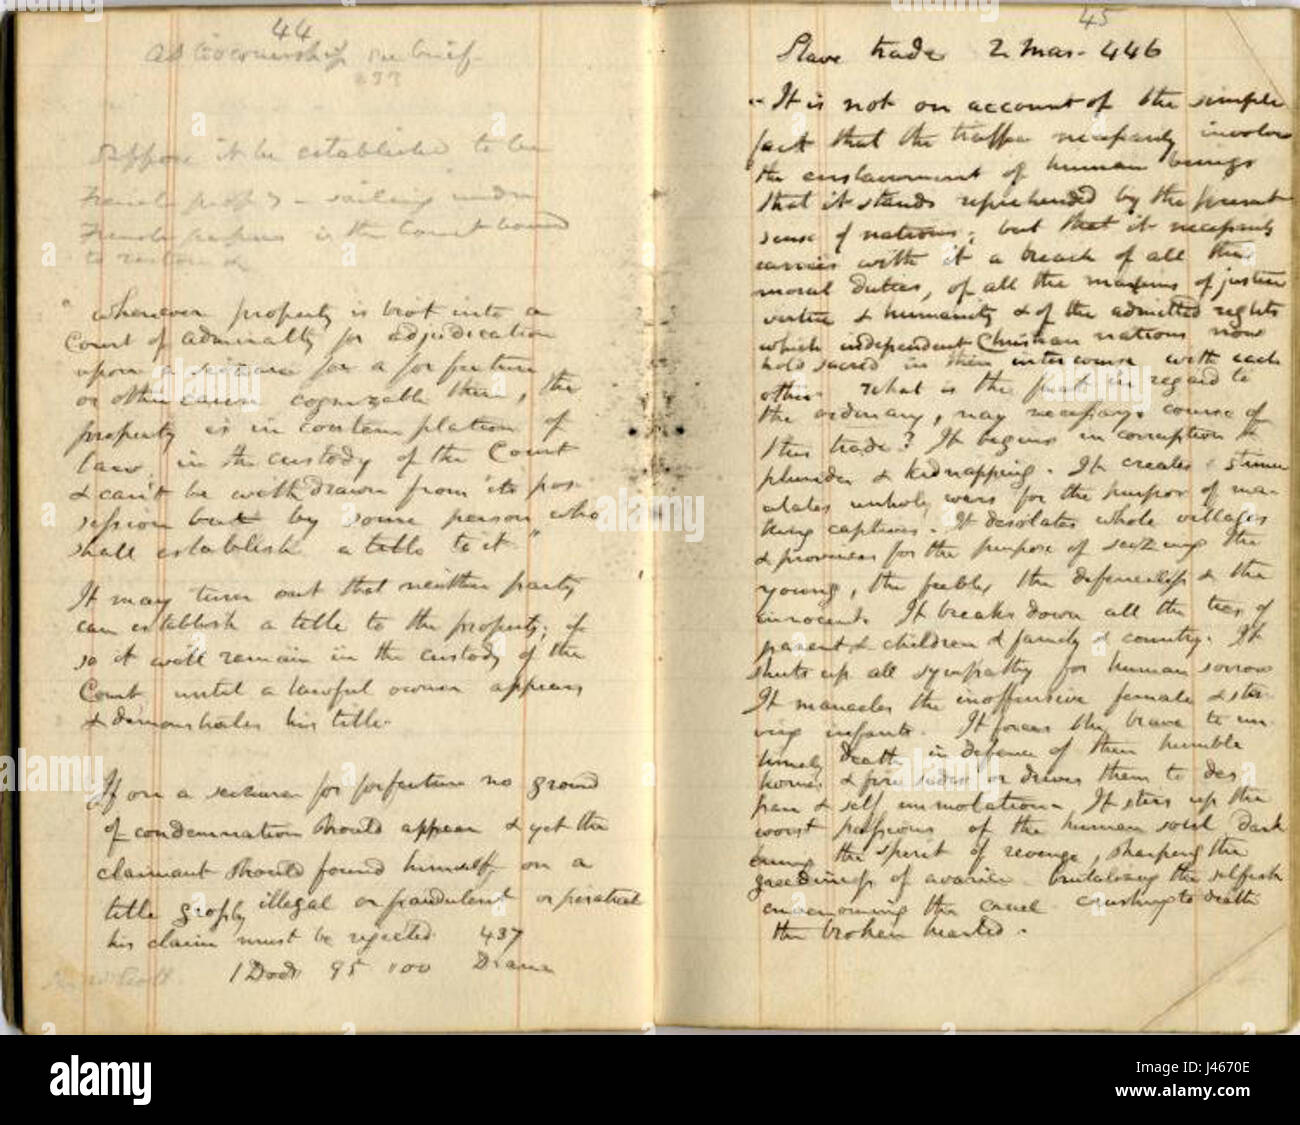 44
As to ownership see brief
233
Suppose it be established to be
French prop'y - sailing under
French papers is the Court bound
to restore &
" Whenever property is brot into a
Court of admiralty for adjudication
upon a seizure for a forfeiture
or other cause cognizable there, the
property is in contemplation of
law in the custody of the Court
& can't be withdrawn from its pos-
session but by some person who
shall establish a title to it "
It may turn out that neither party
can establish a title to the property; if
so it will remain in the custody of the
Court until a lawful owner appears
& demonstrates his title.
If on a seizure for forfeiture no ground
of condemnation should appear & yet the
claimant should found himself on a
title grossly illegal or fraudulent or piratical
his claim must be rejected 437
1 Dods 95 100 Diana
45
Slave trade 2 Mas. 446
" It is not on account of the simple
fact that the traffic necessarily involves
the enslavement of human beings
that it stands reprehended by the present
sense of nations; but that it necessarily
carries with it a breach of all the
moral duties, of all the maxims of justice
virtue & humanity & of the admitted rights
which independent Christian nations now
hold sacred in their intercourse with each
other. What is the fact in regard to
the ordinary, nay necessary course of
this trade? It begins in corruption &
plunder & kidnapping. It creates & stimu
lates unholy wars for the purpose of ma-
king captives. It desolates whole villages
& provinces for the purpose of seizing the
young, the feeble, the defenceless & the
innocent. It breaks down all the ties of
parent & children & family & country. It
shuts up all sympathy for human sorrow
It manacles the inoffensive female & star
ving infants. It forces the brave to un-
timely death in defence of their humble
homes & fire sides or drives them to des
pair & self immolation. It stirs up the
worst passions of the human soul dark
ening the spirit of revenge, sharpening the
greediness of avarice brutalizing the selfish
envenoming the cruel crushing to death
the broken hearted.
alamy stock photo
J4670E
www.alamy.com